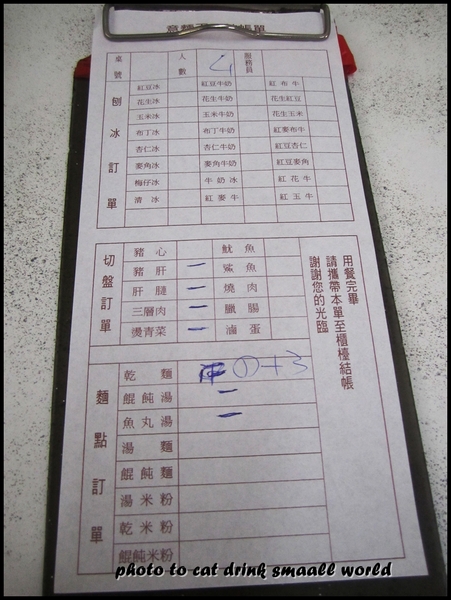 桌號 人數 服務員
刨冰訂單
紅豆冰 紅豆牛奶 紅布牛
花生冰 花生牛奶 花生紅豆
玉米冰 玉米牛奶 花生玉米
布丁冰 布丁牛奶 紅麥布牛
杏仁冰 杏仁牛奶 紅豆杏仁
麥角冰 麥角牛奶 紅豆麥角
梅仔冰 牛奶冰 紅花牛
清冰 紅麥牛 紅玉牛
切盤訂單
豬心 魷魚
豬肝 一 鯊魚
肝腱 一 燒肉
三層肉 一 臘腸
燙青菜 一 滷蛋
用餐完畢
請攜帶本單至櫃檯結帳
謝謝您的光臨
麵點訂單
乾麵
餛飩湯 一
魚丸湯 一
湯麵
餛飩麵
湯米粉
乾米粉
餛飩米粉
photo to cat drink smaall world